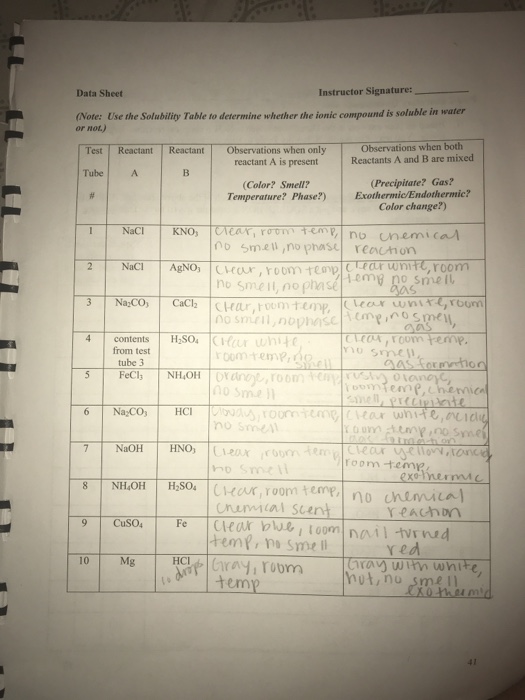 Data Sheet
Instructor Signature:
(Note: Use the Solubility Table to determine whether the ionic compound is soluble in water
or not.)
Test Tube #
Reactant A
Reactant B
Observations when only reactant A is present
(Color? Smell? Temperature? Phase?)
Observations when both Reactants A and B are mixed
(Precipitate? Gas? Exothermic/Endothermic? Color change?)
1
NaCl
KNO₃
Clear, room temp,
no smell, no phase
no chemical
reaction
2
NaCl
AgNO₃
Clear, room temp
no smell, no phase
Clear white, room
temp no smell,
gas
3
Na₂CO₃
CaCl₂
Clear, room temp,
no smell, no phase
Clear white, room
temp, no smell,
gas
4
contents
from test
tube 3
H₂SO₄
Clear white,
room temp, no
smell
Clear, room temp.
no smell,
gas formation
5
FeCl₃
NH₄OH
Orange, room temp
no smell
rusty orange,
room temp, chemical
smell, precipitate
6
Na₂CO₃
HCl
room temp
no smell
Clear white,
room temp, no smell
gas formation
7
NaOH
HNO₃
Clear, room temp
no smell
Clear yellow,
room temp,
exothermic
8
NH₄OH
H₂SO₄
Clear, room temp,
Chemical scent
no chemical
reaction
9
CuSO₄
Fe
Clear blue, room
temp, no smell
nail turned
red
10
Mg
HCl
10 drops
Gray, room
temp
Gray with white,
hot, no smell
exothermic
41